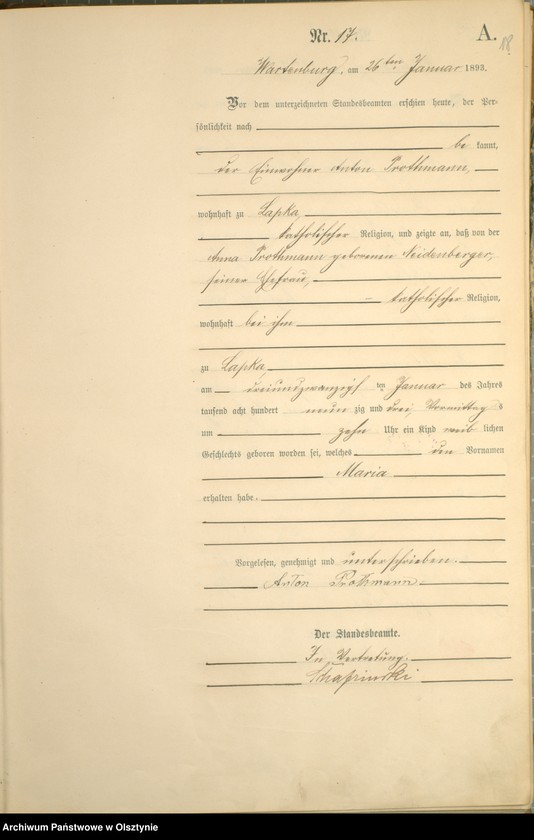 Nr. 17.
A.
18
Wartenburg, am 26ten Januar 1893.
Vor dem unterzeichneten Standesbeamten erschien heute, der Per-
sönlichkeit nach
be kannt,
der Einwohner Anton Prothmann,
wohnhaft zu Lapka,
katholischer Religion, und zeigte an, daß von der
Anna Prothmann geborenen Neidenberger,
seiner Ehefrau,
katholischer Religion,
wohnhaft bei ihm
zu Lapka,
am dreiundzwanzigsten Januar des Jahres
tausend acht hundert neun zig und drei, Vormittags
um zehn Uhr ein Kind weib lichen
Geschlechts geboren worden sei, welches den Vornamen
Maria
erhalten habe.
Vorgelesen, genehmigt und unterschrieben.
Anton Prothmann
Der Standesbeamte.
In Vertretung.
Archiwum Państwowe w Olsztynie